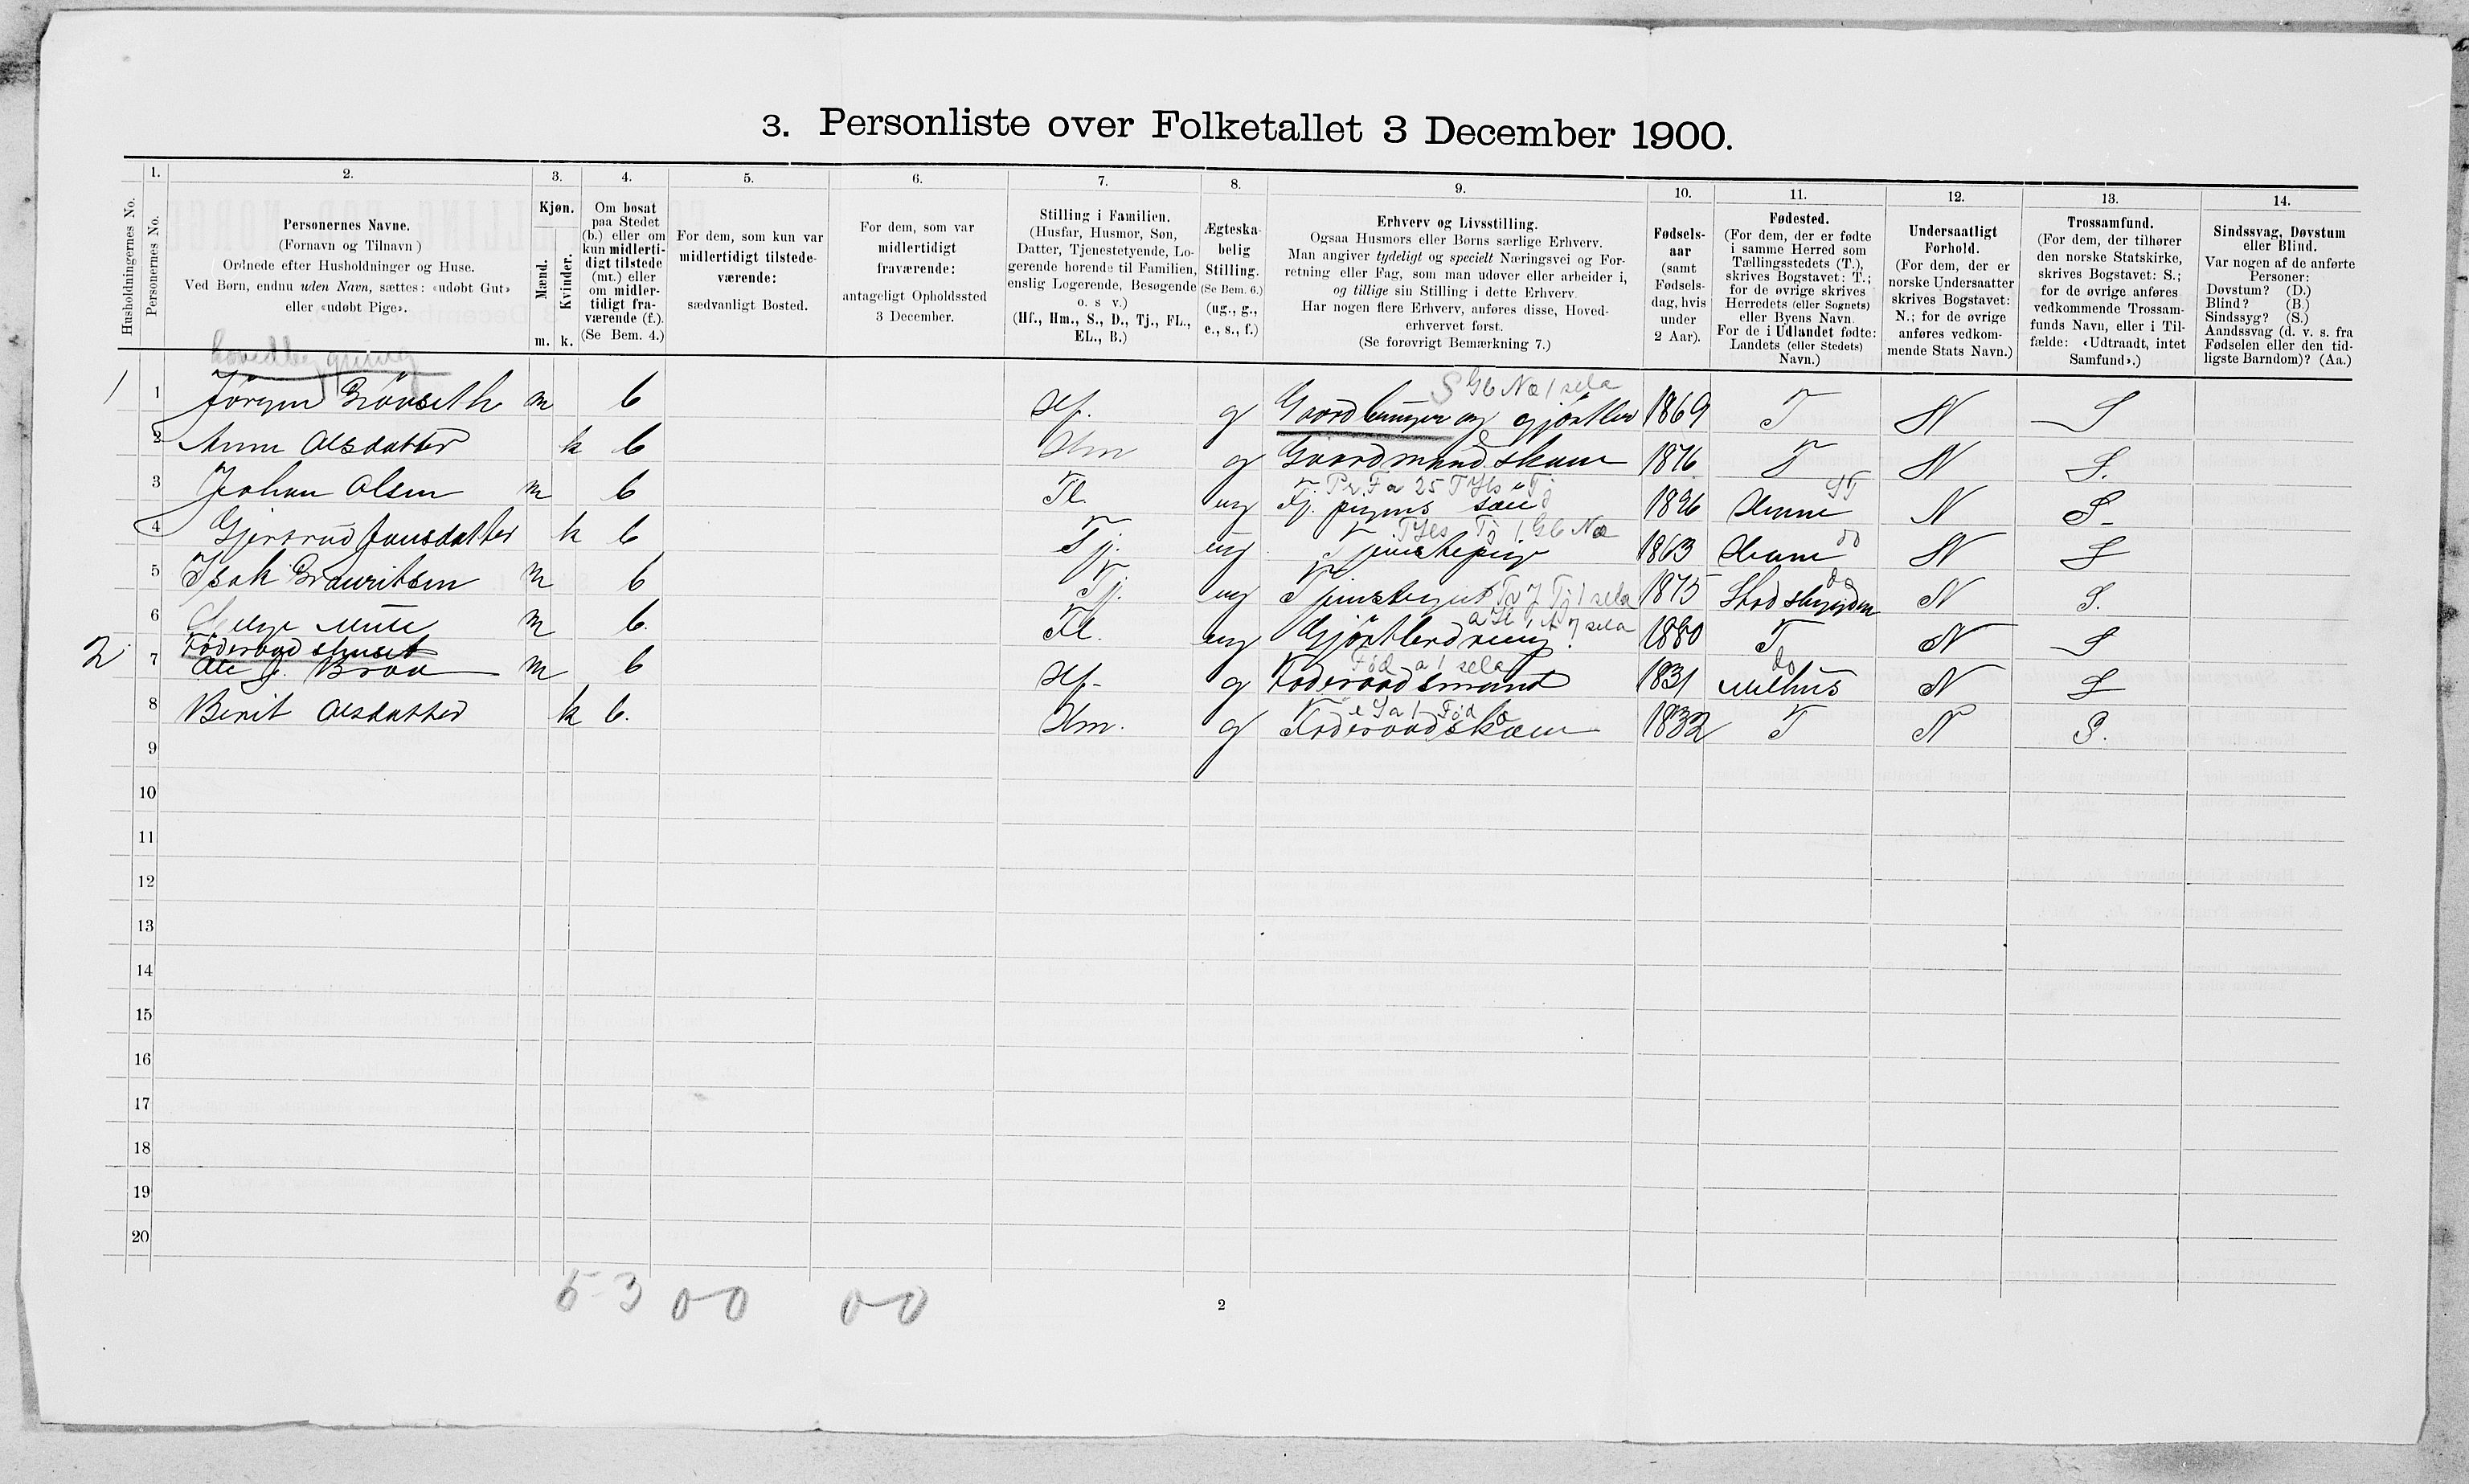 3. Personliste over Folketallet 3 December 1900.
Husholdningernes No.
1.
Personernes No.
2.
Personernes Navne.
(Fornavn og Tilnavn)
Ordnede efter Husholdninger og Huse.
Ved Børn, endnu uden Navn, sættes: «udøbt Gut»
eller «udøbt Pige».
3.
Kjøn.
Mænd.
Kvinder.
m. k.
4.
Om bosat
paa Stedet
(b.) eller om
kun midlerti-
digt tilstede
(mt.) eller
om midler-
tidigt fra-
værende (f.).
(Se Bem. 4.)
5.
For dem, som kun var
midlertidigt tilstede-
værende:
sædvanligt Bosted.
6.
For dem, som var
midlertidigt
fraværende:
antageligt Opholdssted
3 December.
7.
Stilling i Familien.
(Husfar, Husmor, Søn,
Datter, Tjenestetyende, Lo-
gerende hørende til Familien,
enslig Logerende, Besøgende
o. s v.)
(Hf., Hm., S., D., Tj., FL.,
EL., B.)
8.
Ægteska-
belig
Stilling.
(Se Bem. 6.)
(ug., g.,
e., s., f.)
9.
Erhverv og Livsstilling.
Ogsaa Husmors eller Børns særlige Erhverv.
Man angiver tydeligt og specielt Næringsvei og For-
retning eller Fag, som man udøver eller arbeider i,
og tillige sin Stilling i dette Erhverv.
Har nogen flere Erhverv, anføres disse, Hoved-
erhvervet først.
(Se forøvrigt Bemærkning 7.)
10.
Fødsels-
aar
(samt
Fødsels-
dag, hvis
under
2 Aar).
11.
Fødested.
(For dem, der er fødte
i samme Herred som
Tællingsstedets (T.),
skrives Bogstavet: T.;
for de øvrige skrives
Herredets (eller Sognets)
eller Byens Navn.
For de i Udlandet fødte:
Landets (eller Stedets)
Navn.)
12.
Undersaatligt
Forhold.
(For dem, der er
norske Undersaatter
skrives Bogstavet:
N.; for de øvrige
anføres vedkom-
mende Stats Navn.)
13.
Trossamfund.
(For dem, der tilhører
den norske Statskirke,
skrives Bogstavet: S.;
for de øvrige anføres
vedkommende Trossam-
funds Navn, eller i Til-
fælde: «Udtraadt, intet
Samfund».)
14.
Sindssvag, Døvstum
eller Blind.
Var nogen af de anførte
Personer:
Døvstum? (D.)
Blind? (B.)
Sindssyg? (S.)
Aandssvag (d. v. s. fra
Fødselen eller den tid-
ligste Barndom)? (Aa.)
S Gb Na 1 sela
1 1 Jörgen m b Hf. g Gaardbruger og gjörtler 1869 T N S
2 Anne Olsdatter k b Hm g Gaardmandskone 1876 T N S.
3 Johan Olsen m b Fl. ug Tj. pigens 1896 N S.
4 Gjertrud Jonsdatter k b Tj. ug Tjenstepige 1863 N S
5 Isak m b Tj. ug Tjenstegut 1875 Stadsbygden N S.
6 m b. Fl. ug Gjörtlerdreng. 1880 T N S
Föderaadshuset
2 7 Ole J. Braa m b Hf. g Foderaadsmand 1831 Melhus N S
8 Berit Olsdatter k b. Hm. g Foderaadskone 1832 T N S.
9
10
11
12
13
14
15
16
17
18
19
20
5 3 0 0 0 0
2